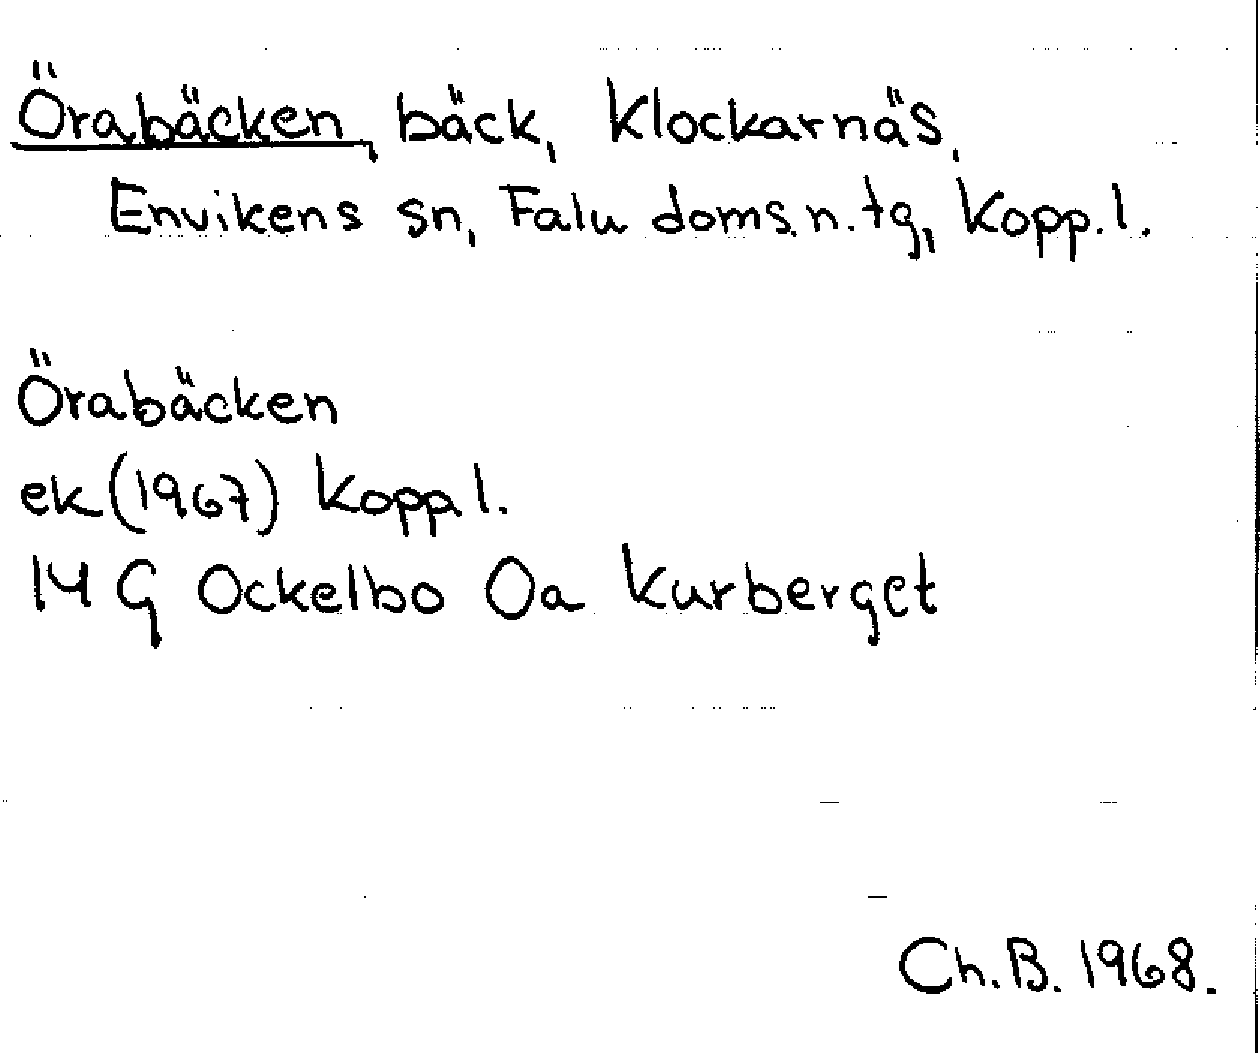 Örabäcken, bäck, Klockarnäs,
Envikens sn, Falu doms.n.tg, Kopp.l.
Örabäcken
ek (1967) Kopp l.
14 G Ockelbo 0a Kurberget
Ch. B. 1968.